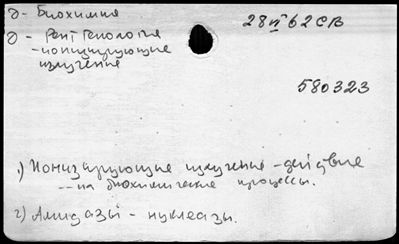 д - Биохимия
28 VI 62 СВ
д - Рентгенология
- ионизирующие
излучения
580323
1) Ионизирующие излучения - действие
-- на биохимические процессы.
2) Амидазы - нуклеазы.